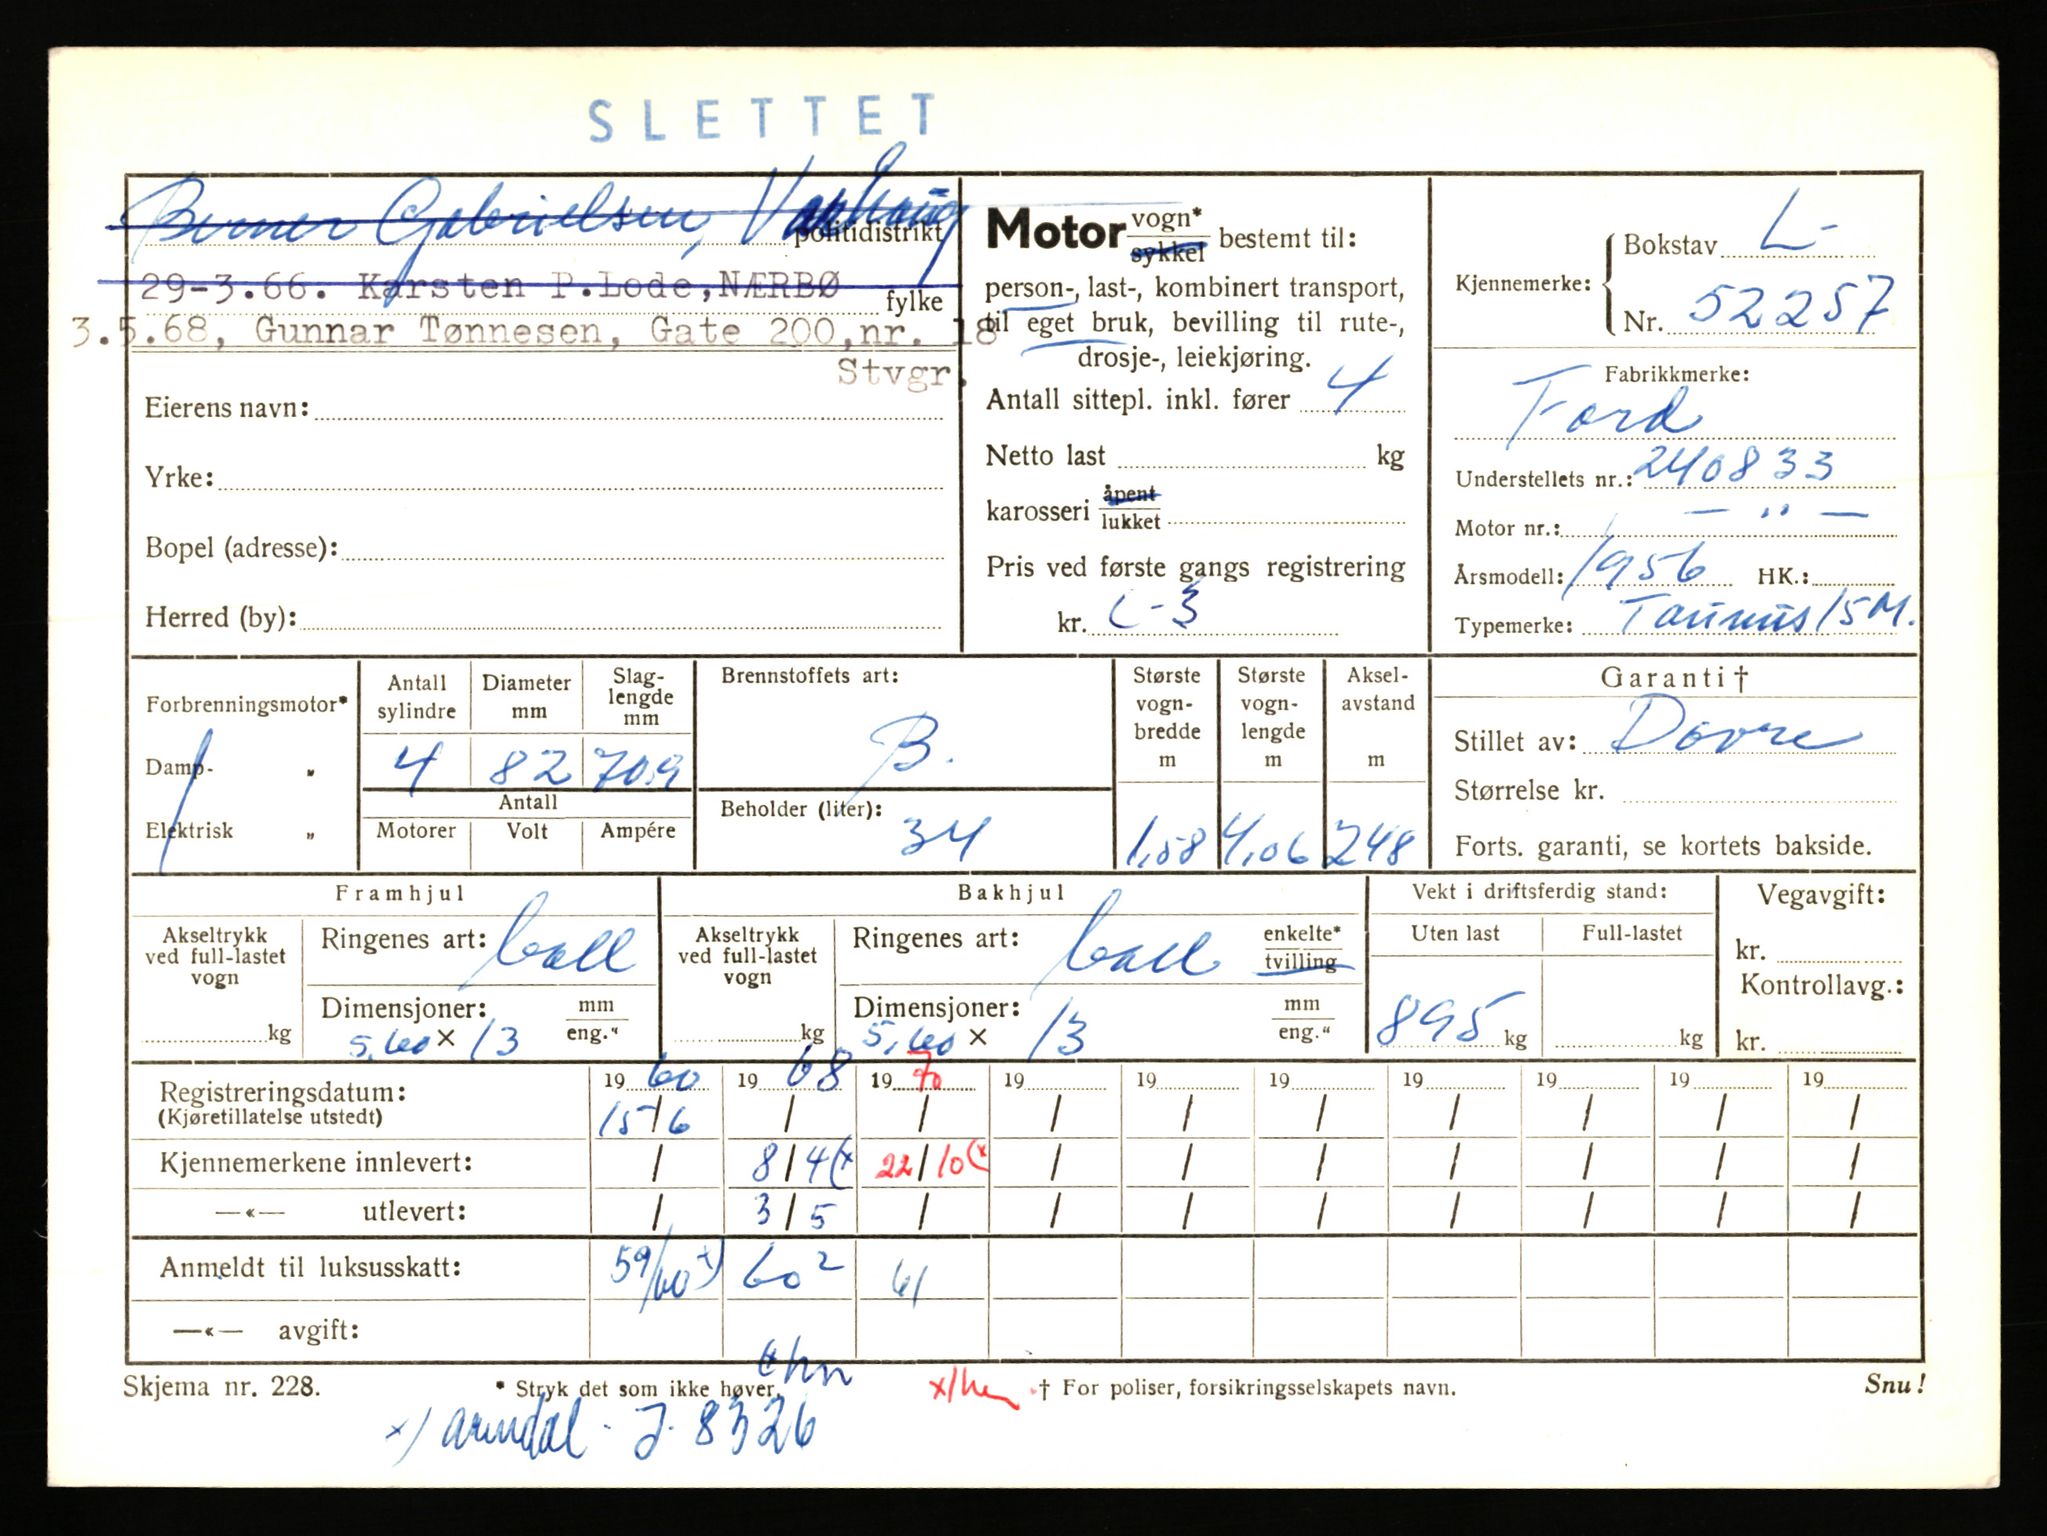 SLETTET
Berner Gabrielsen, Varhaug
politidistrikt
29-3.66. Karsten P.Lode,NÆRBØ
fylke
3.5.68, Gunnar Tønnesen, Gate 200,nr. 18
Stvgr.
Eierens navn:
Yrke:
Bopel (adresse):
Herred (by):
Motor vogn* sykkel bestemt til:
person-, last-, kombinert transport,
til eget bruk, bevilling til rute-,
drosje-, leiekjøring.
Antall sittepl. inkl. fører 4
Netto last kg
karosseri åpent lukket
Pris ved første gangs registrering
kr. L-3
Kjennemerke: Bokstav L-
Nr. 52257
Fabrikkmerke:
Ford
Understellets nr.: 240833
Motor nr.: — " —
Årsmodell: 1956 HK.:
Typemerke: Taunus 15M.
Forbrenningsmotor*
Damp- "
Elektrisk "
Antall sylindre Diameter mm Slaglengde mm
4 82 70.9
Antall
Motorer Volt Ampére
Brennstoffets art:
B.
Beholder (liter):
34
Største vognbredde m Største vognlengde m Akselavstand m
1,58 4,06 248
Garanti†
Stillet av: Dovre
Størrelse kr.
Forts. garanti, se kortets bakside.
Framhjul
Akseltrykk ved full-lastet vogn
kg
Ringenes art: ball
Dimensjoner: mm eng."
5,60 × 13
Bakhjul
Akseltrykk ved full-lastet vogn
kg
Ringenes art: ball enkelte* tvilling
Dimensjoner: mm eng."
5,60 × 13
Vekt i driftsferdig stand:
Uten last Full-lastet
895 kg kg
Vegavgift:
kr.
Kontrollavg.:
kr.
Registreringsdatum: 19 60 19 68 19 70 19 19 19 19 19 19 19
(Kjøretillatelse utstedt) 15/6 / / / / / / / / /
Kjennemerkene innlevert: / 8/4(x 22/10(x / / / / / / /
—«— utlevert: / 3/5 / / / / / / / /
Anmeldt til luksusskatt: 59/60 x) 60 2 61
—«— avgift:
Skjema nr. 228. * Stryk det som ikke høver. † For poliser, forsikringsselskapets navn. Snu!
x) Arendal - J- 8326